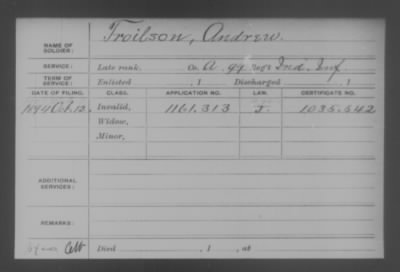 NAME OF SOLDIER: Troilson, Andrew.
SERVICE: Late rank, Co. A. 99 Reg't Ind. Inf.
TERM OF SERVICE: Enlisted , 1 Discharged , 1
DATE OF FILING. CLASS. APPLICATION NO. LAW. CERTIFICATE NO.
Oct. 12. Invalid, 1161.313 J. 1035.542
Widow,
Minor,
ADDITIONAL SERVICES:
REMARKS:
Died , 1 , at